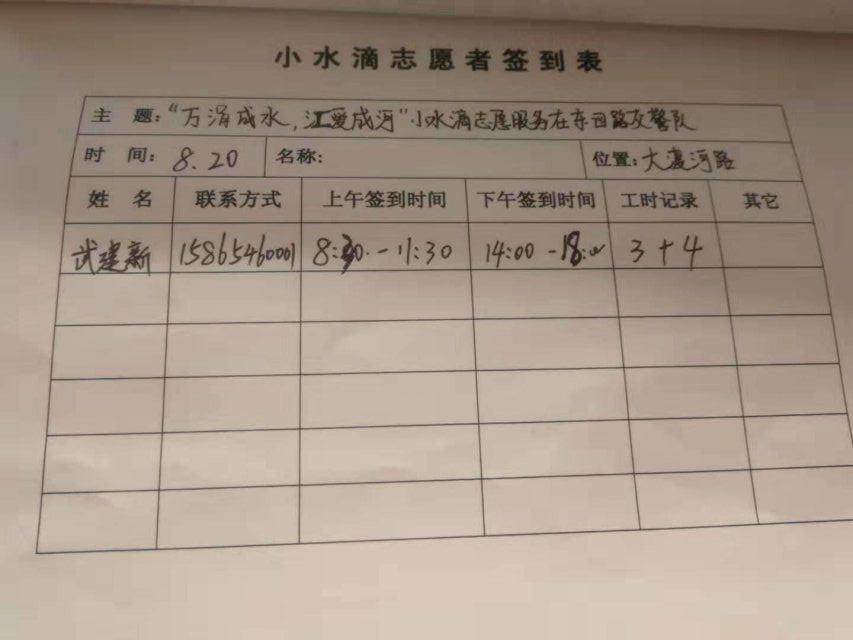 小水滴志愿者签到表
主 题："万涓成水，江爱成河"小水滴志愿服务在东四路交警队
时 间：8.20 名称： 位置：大夏河路
姓 名 联系方式 上午签到时间 下午签到时间 工时记录 其它
武建新 15865460001 8:30-11:30 14:00-18:00 3+4